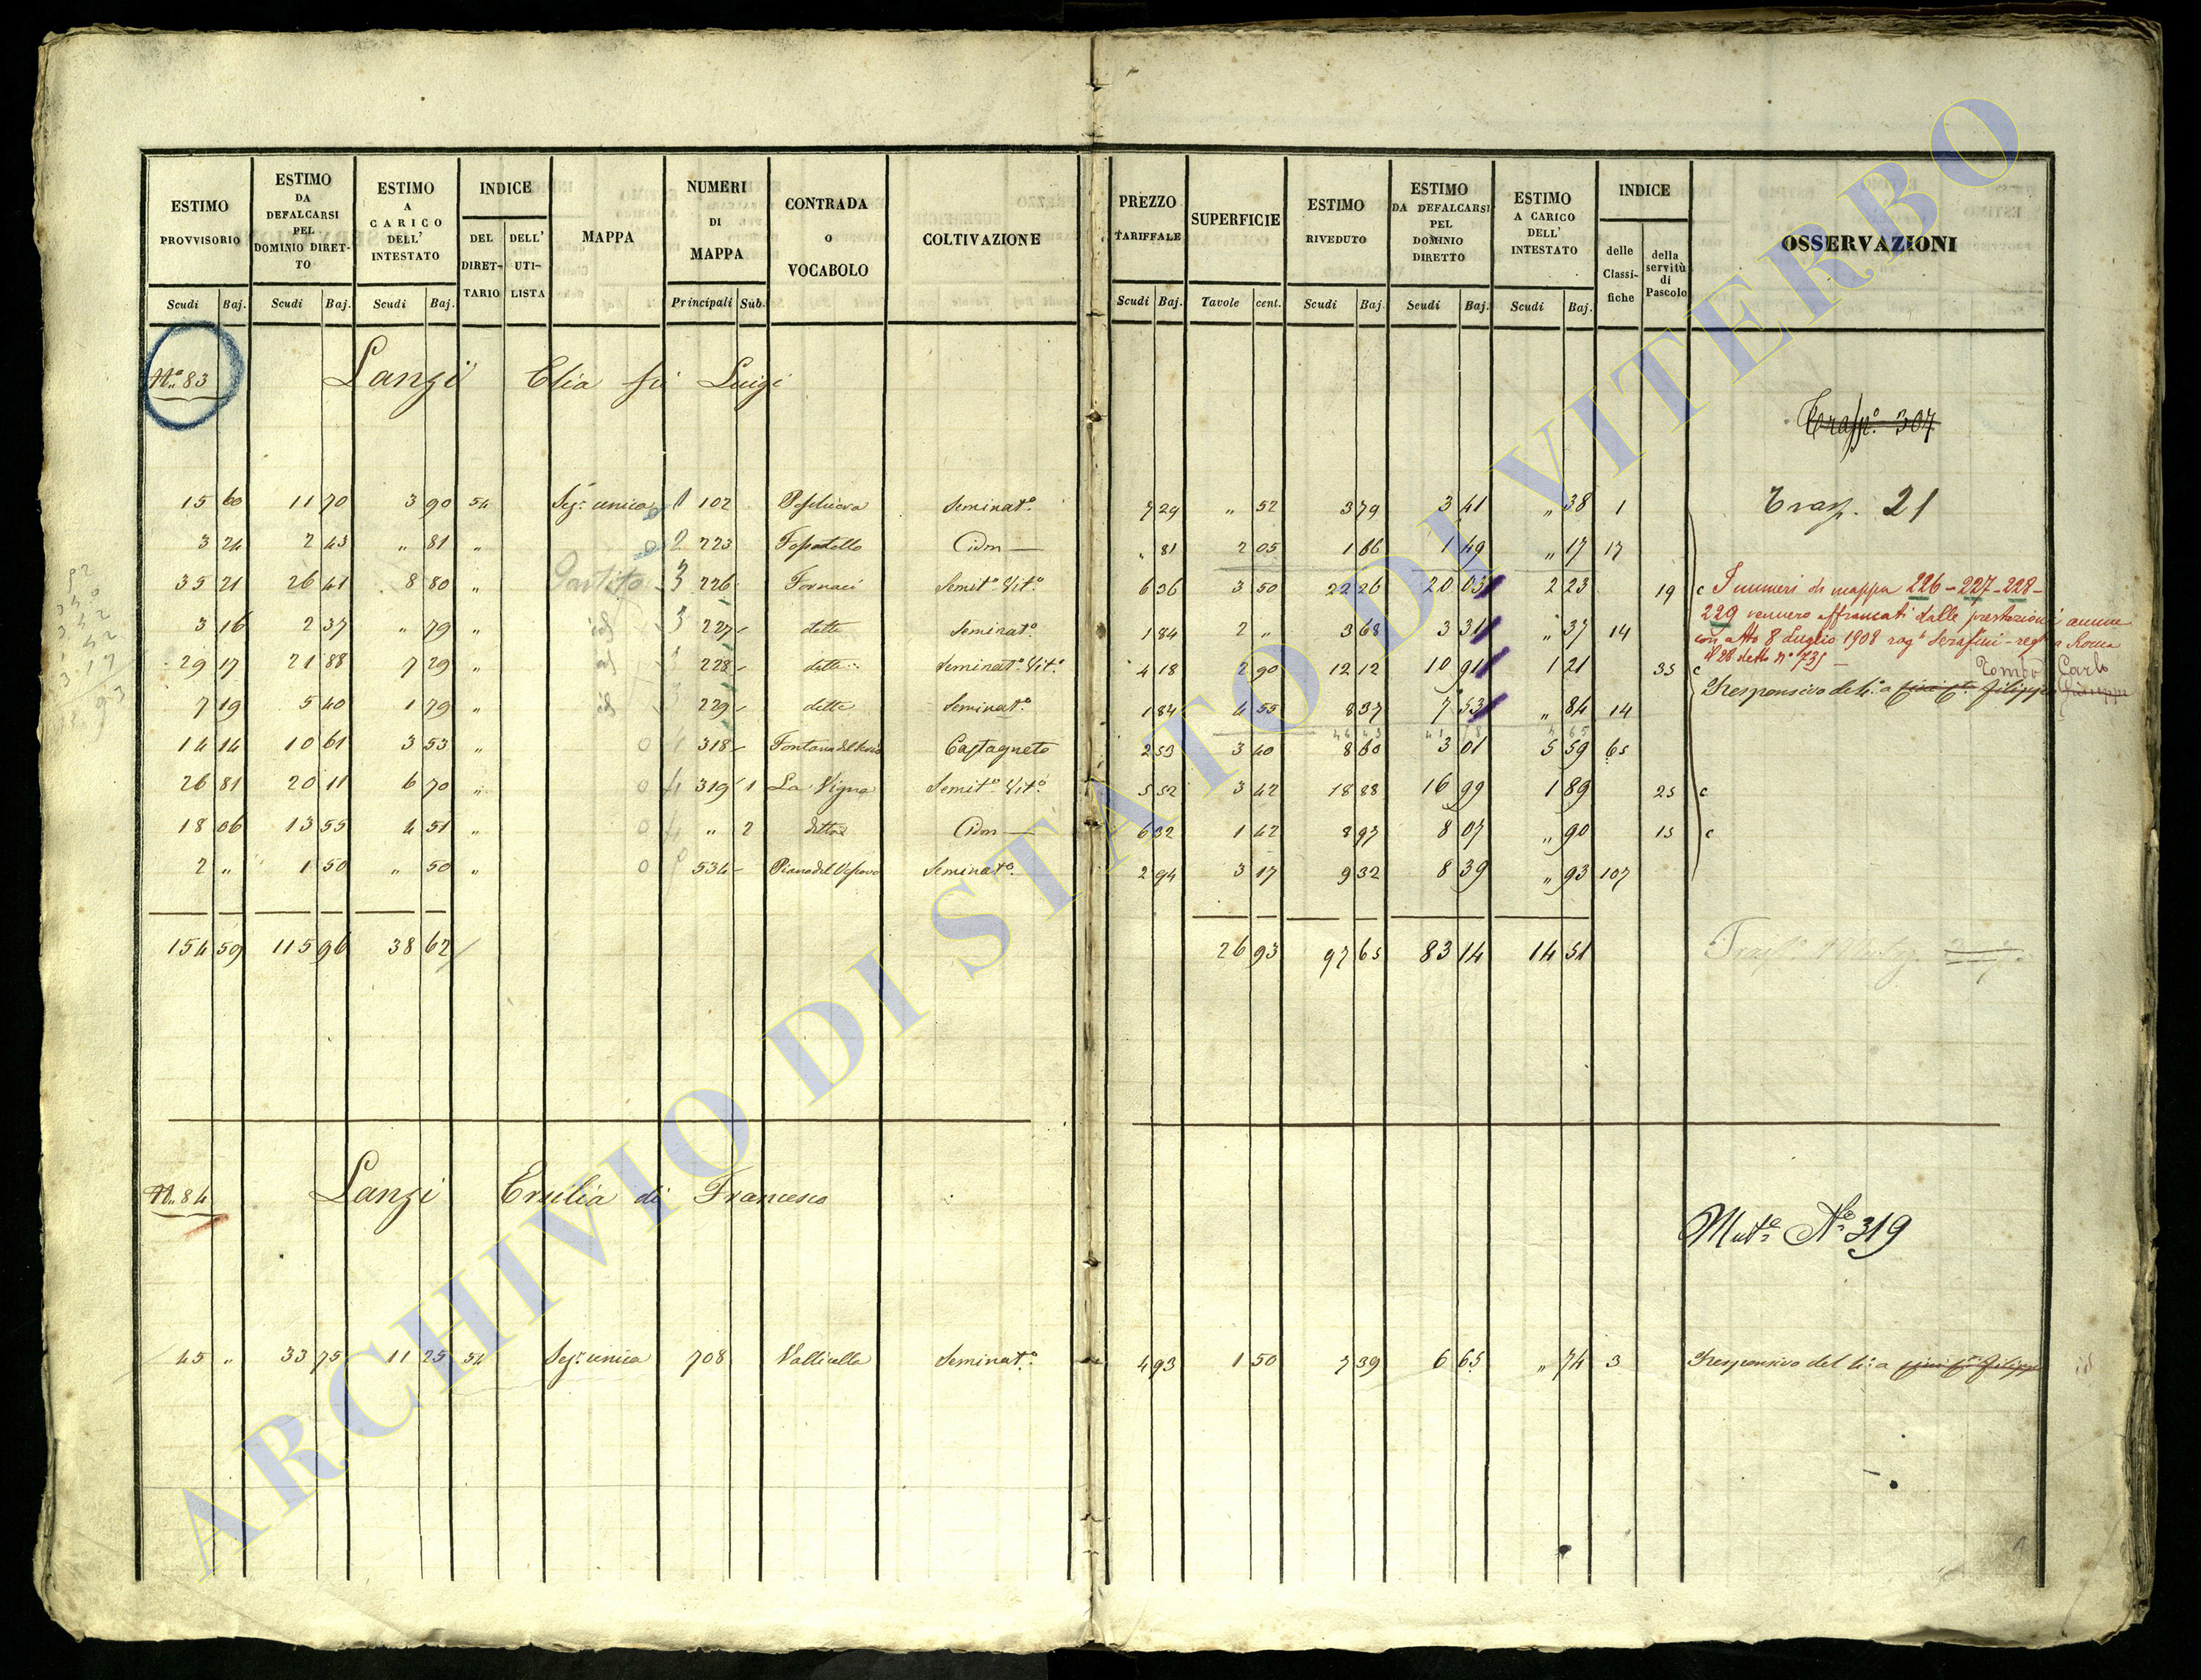 ESTIMO PROVVISORIO | ESTIMO DA DEFALCARSI PEL DOMINIO DIRETTO | ESTIMO A CARICO DELL' INTESTATO | INDICE | MAPPA | NUMERI DI MAPPA | CONTRADA o VOCABOLO | COLTIVAZIONE | PREZZO TARIFFALE | SUPERFICIE | ESTIMO RIVEDUTO | ESTIMO DA DEFALCARSI PEL DOMINIO DIRETTO | ESTIMO A CARICO DELL' INTESTATO | INDICE | OSSERVAZIONI
DEL DIRETTARIO | DELL' UTILISTA | delle Classifiche | della servitù di Pascolo
Scudi | Baj. | Scudi | Baj. | Scudi | Baj. | Principali | Sub. | Scudi | Baj. | Tavole | cent. | Scudi | Baj. | Scudi | Baj. | Scudi | Baj.
N.° 83 Lanzi Elia fu Luigi
Trasp.° 307
Trasp. 21
15 60 | 11 70 | 3 90 | 54 | Sez.e unica | 1 102 | Seminat.° | 7 29 | " 52 | 3 79 | 3 41 | " 38 | 1
3 24 | 2 43 | " 81 | " | 0 2 223 | Fossatello | Idm — | " 81 | 2 05 | 1 66 | 1 49 | " 17 | 17
35 21 | 26 41 | 8 80 | " | Partito | 3 226 | Fornaci | Semit.° Vit.° | 6 36 | 3 50 | 22 26 | 20 03 | 2 23 | 19 c
I numeri di mappa 226 - 227 - 228 -
3 16 | 2 37 | " 79 | " | id | 3 227 | dette | Seminat.° | 1 84 | 2 " | 3 68 | 3 31 | " 37 | 14
229 vennero affrancati dalle prestazioni annue
con atto 8 Luglio 1908 rog.° Serafini - reg.° a Roma
il 28 detto n° 731 —
29 17 | 21 88 | 7 29 | " | id | 3 228 | dette | Seminat.° Vit.° | 4 18 | 2 90 | 12 12 | 10 91 | 1 21 | 35 c
Carlo
Responsivo del 4.° a
7 19 | 5 40 | 1 79 | " | id | 3 229 | dette | Seminat.° | 1 84 | 4 55 | 8 37 | 7 53 | " 84 | 14
14 14 | 10 61 | 3 53 | " | 0 4 318 | Castagneto | 2 53 | 3 40 | 8 60 | 3 01 | 5 59 | 65
26 81 | 20 11 | 6 70 | " | 0 4 319 | 1 | La Vigna | Semit.° Vit.° | 5 52 | 3 42 | 18 88 | 16 99 | 1 89 | 25 c
18 06 | 13 55 | 4 51 | " | 0 4 " | 2 | detto | Idm — | 6 32 | 1 42 | 8 97 | 8 07 | " 90 | 15 c
2 " | 1 50 | " 50 | " | 0 534 | Piano del Vescovo | Seminat.° | 2 94 | 3 17 | 9 32 | 8 39 | " 93 | 107
154 59 | 115 96 | 38 62 | 26 93 | 97 65 | 83 14 | 14 51
N. 84 Lanzi Ersilia di Francesco
Mut.e N.° 319
45 " | 33 75 | 11 25 | 54 | Sez.e unica | 708 | Vallicella | Seminat.° | 4 93 | 1 50 | 7 39 | 6 65 | " 74 | 3 | Responsivo del 4.° a
ARCHIVIO DI STATO DI VITERBO